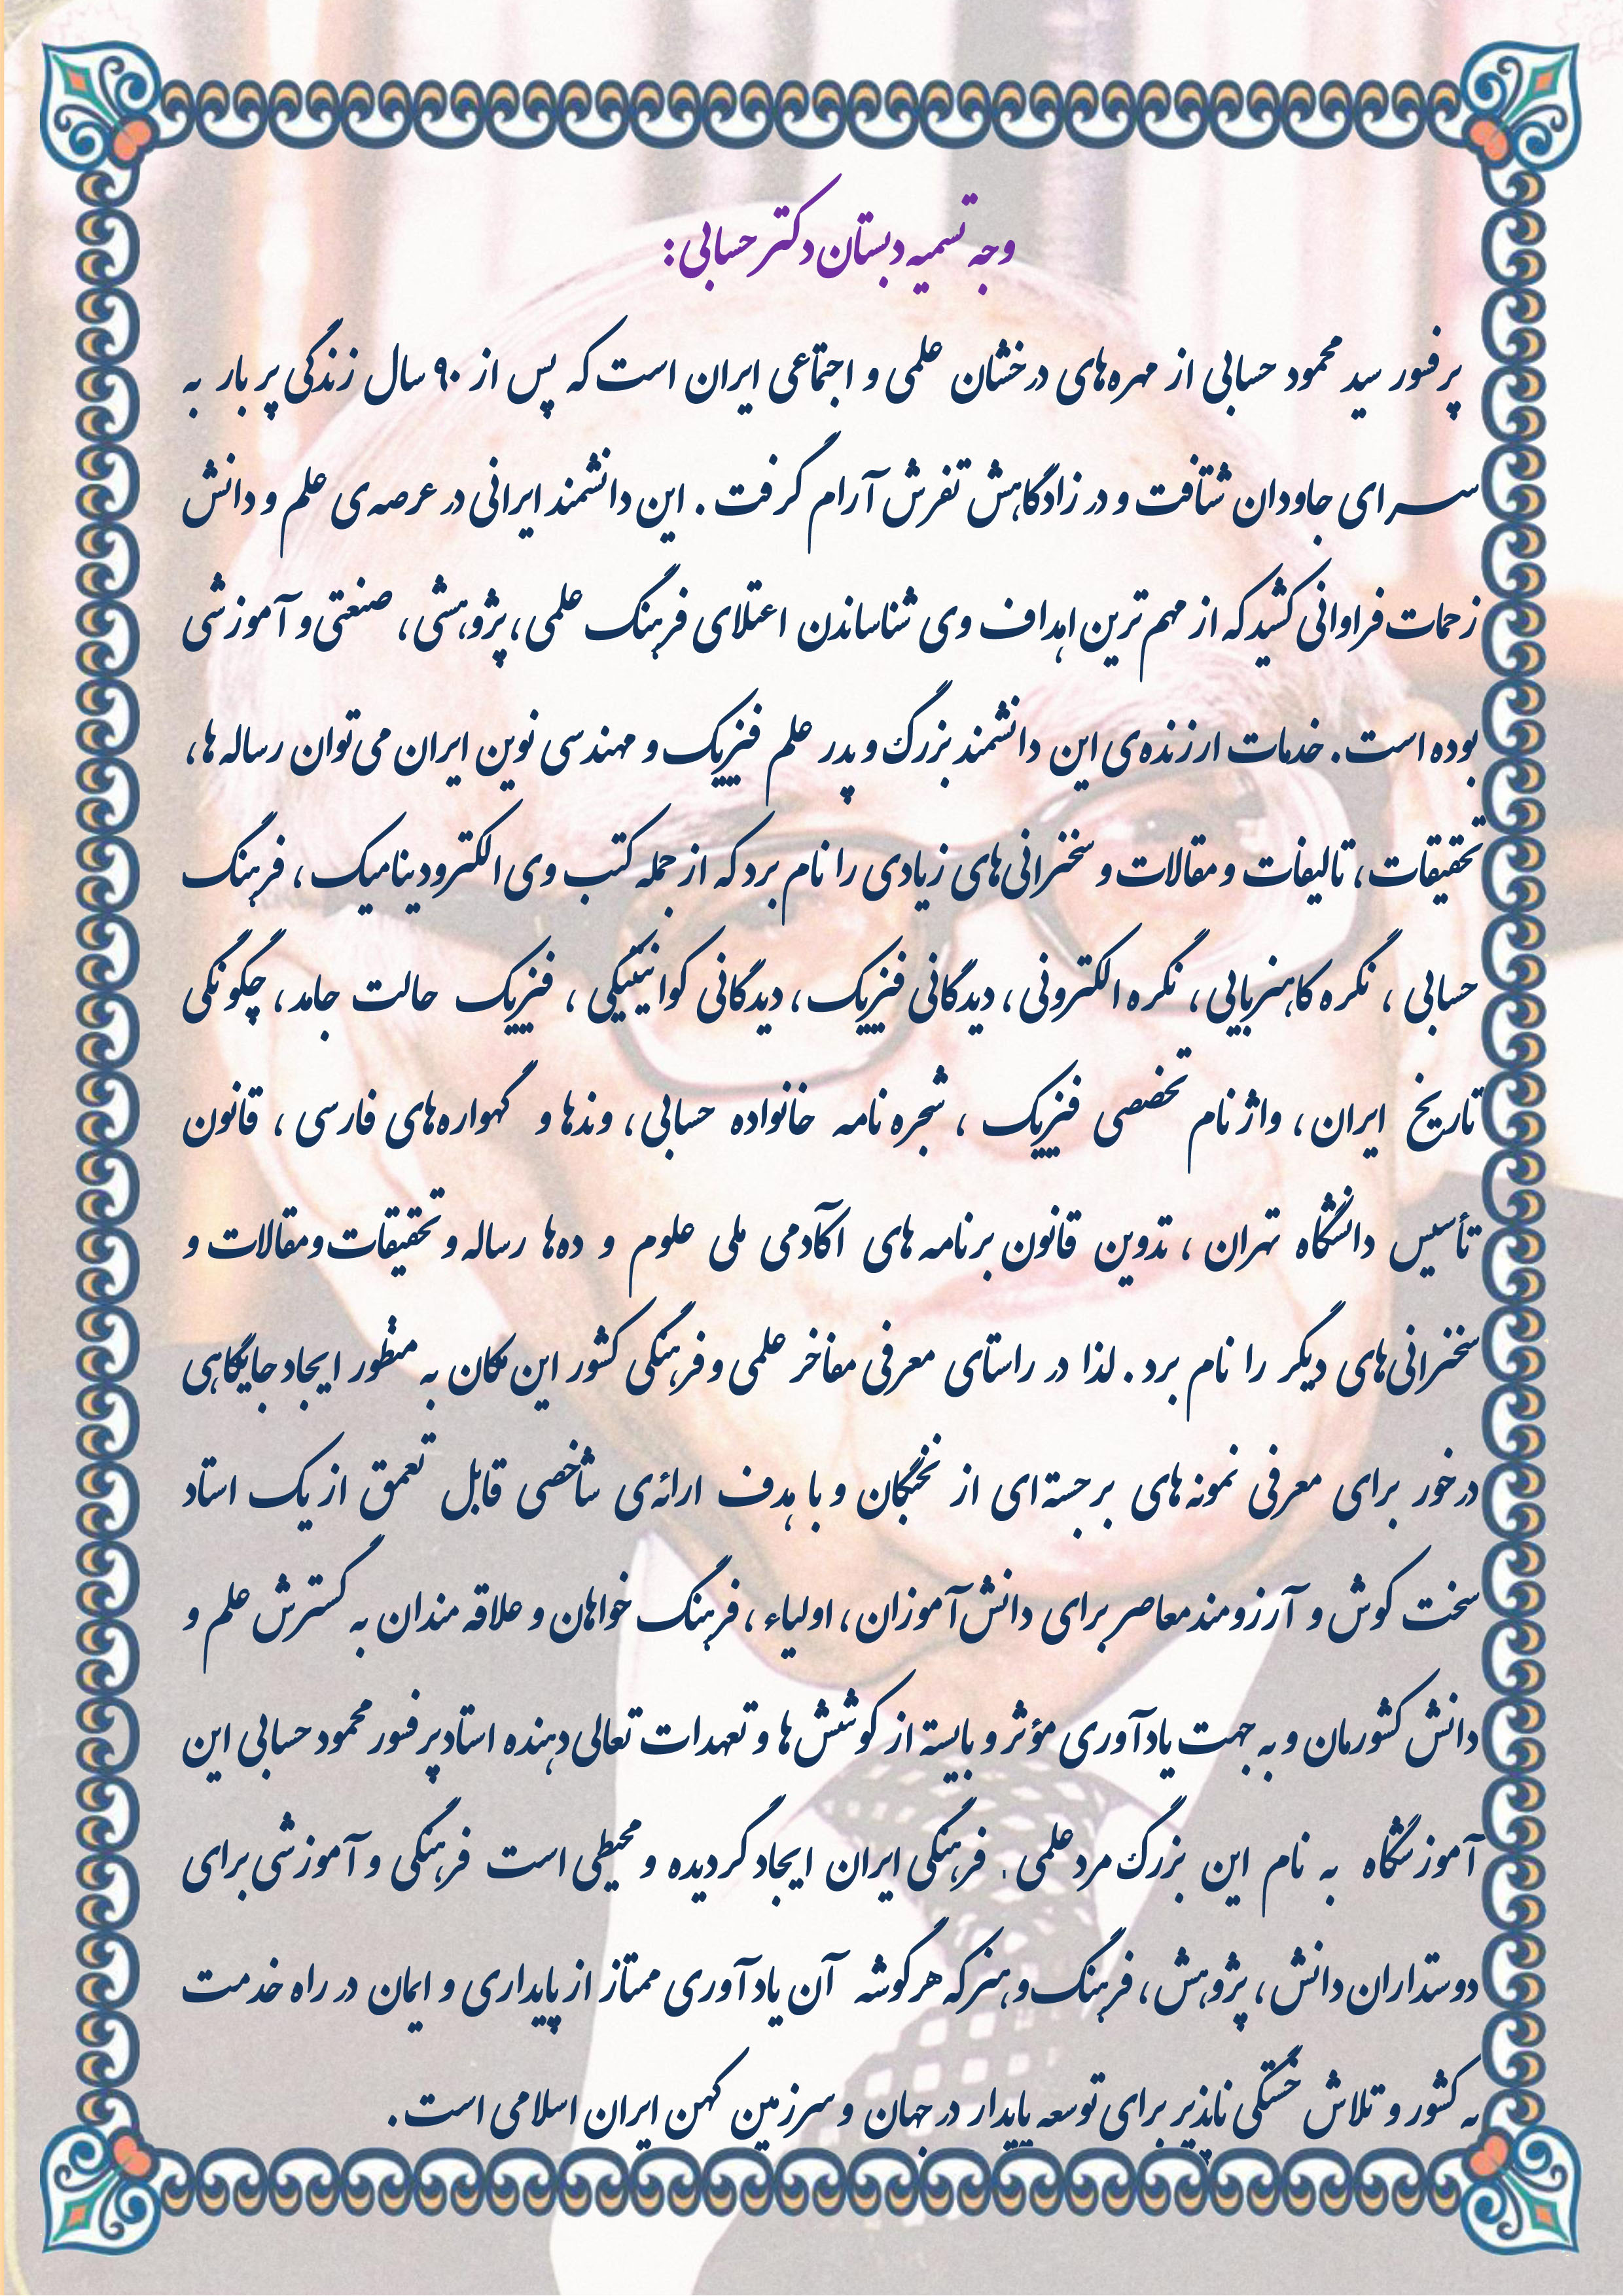 وجه تسمیه دبستان دکتر حسابی:
پرفسور سید محمود حسابی از مهره‌های درخشان علمی و اجتماعی ایران است که پس از ۹۰ سال زندگی پر بار به
سرای جاودان شتافت و در زادگاهش تفرش آرام گرفت. این دانشمند ایرانی در عرصه‌ی علم و دانش
زحمات فراوانی کشید که از مهم ترین اهداف وی شناساندن اعتلای فرهنگ علمی، پژوهشی، صنعتی و آموزشی
بوده است. خدمات ارزنده‌ی این دانشمند بزرگ و پدر علم فیزیک و مهندسی نوین ایران می‌توان رساله ها،
تحقیقات، تالیفات و مقالات و سخنرانی‌های زیادی را نام برد که از جمله کتب وی الکترودینامیک، فرهنگ
حسابی، نگره کاهنربایی، نگره الکترونی، دیدگانی فیزیک، دیدگانی کوانتیکی، فیزیک حالت جامد، چگونگی
تاریخ ایران، واژ نام تخصصی فیزیک، شجره نامه خانواده حسابی، وندها و گهواره‌های فارسی، قانون
تأسیس دانشگاه تهران، تدوین قانون برنامه های اکآدمی ملی علوم و ده‌ها رساله و تحقیقات و مقالات و
سخنرانی‌های دیگر را نام برد. لذا در راستای معرفی مفاخر علمی و فرهنگی کشور این مکان به منظور ایجاد جایگاهی
درخور برای معرفی نمونه های برجسته‌ای از نخبگان و با هدف ارائه‌ی شاخصی قابل تعمق از یک استاد
سخت کوش و آرزومند معاصر برای دانش‌آموزان، اولیاء، فرهنگ خواهان و علاقه مندان به گسترش علم و
دانش کشورمان و به جهت یادآوری مؤثر و بایسته از کوشش ها و تعهدات تعالی دهنده استاد پرفسور محمود حسابی این
آموزشگاه به نام این بزرگ مرد علمی، فرهنگی ایران ایجاد گردیده و محیطی است فرهنگی و آموزشی برای
دوستداران دانش، پژوهش، فرهنگ و هنر که هر گوشه آن یادآوری ممتاز از پایداری و ایمان در راه خدمت
به کشور و تلاش خستگی ناپذیر برای توسعه پایدار در جهان و سرزمین کهن ایران اسلامی است.